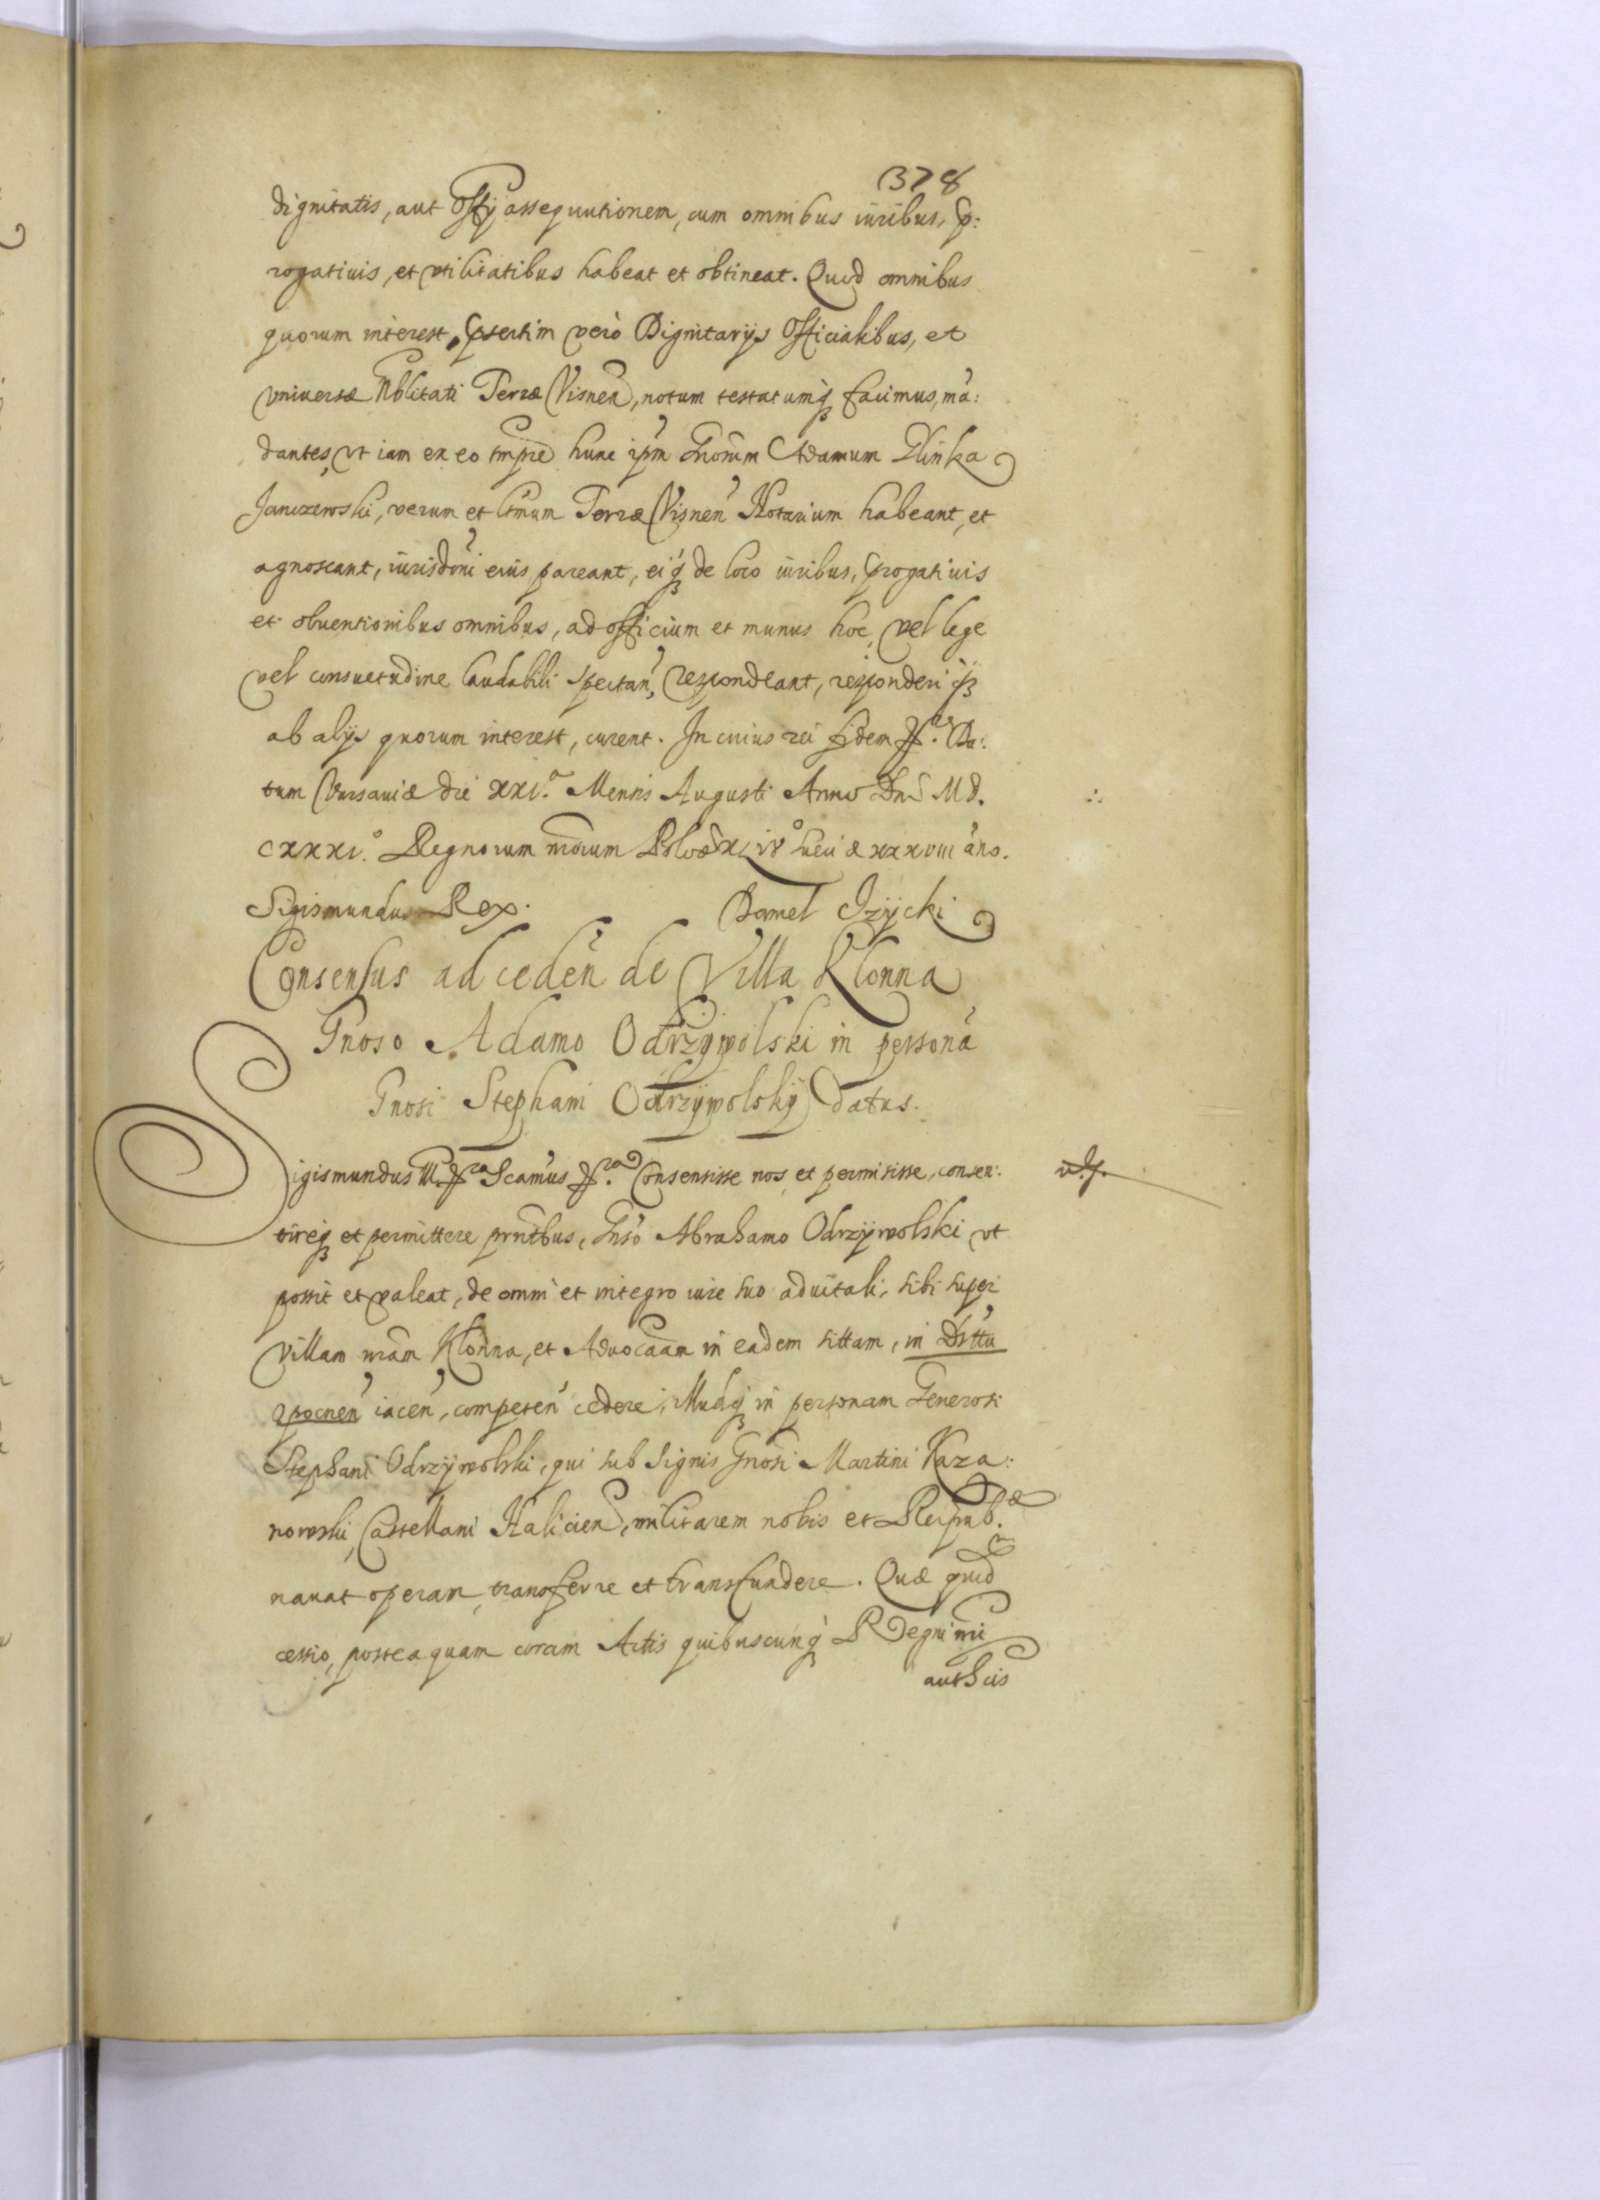 378
dignitatis, aut Offy assequutionem, cum omnibus iuribus, p:
rogatiuis, et vtilitatibus habeat et obtineat. Quod omnibus
quorum interest, psertim verò Dignitarijs Officialibus, et
vniversæ Nblitati Terræ Visnen, notum testatumq facimus, mã:
dantes, vt iam ex eo tmpre hunc ipm Gnorum Adamum Glinka
Janczewski, verum et ltmum Terræ Visnen Notarium habeant, et
agnoscant, iurisdoni eius pareant, eiq de loco iuribus, progatiuis
et obuentionibus omnibus, ad officium et munus hoc, vel lege
vel consuetudine laudabili spectan, respondeant, responderiq
ab alijs quorum interest, curent. In cuius rei fidem Da:
tum Varsauiæ die XXI.a Mensis Augusti Anno Dni MD.
CXXXI.o Regnorum nrorum Poloæ XLIVo Sueciæ XXXVIII ano.
Sigismundus Rex. Daniel Izycki
Consensus ad ceden de Villa Klonna
Gnoso Adamo Odrzywolski in personã
Gnosi Stephani Odrzÿwolskÿ datus.
Sigismundus III Scamus Consensisse nos et permisisse, consen:
tireq et permittere prntibus, Gnso Abrahamo Odrzÿwolski vt
possit et valeat, de omni et integro iure suo aduitali, sibi super
Villam nram Klonna, et Aduocaam in eadem sittam, in Disttu
Opocnen iacen, competen cedere, illudq in personam Generosi
Stephani Odrzÿwolski, qui sub signis Gnosi Martini Kaza:
nowski, Castellani Halicien, militarem nobis et Reipub.æ
nauat operam, transferre et transfundere. Quæ quid
cessio, posteaquam coram Actis quibuscunq Regni nri
authcis